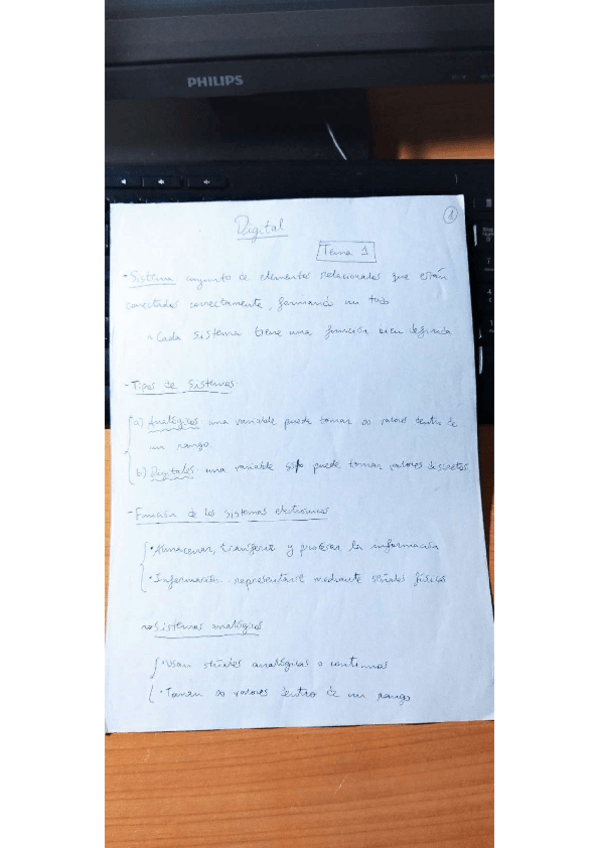 PHILIPS
1
Digital
Tema 1
- Sistema conjunto de elementos relacionales que están
conectados correctamente, formando un todo
Cada sistema tiene una función bien definida
- Tipos de Sistemas
a) Analógicos una variable puede tomar ∞ valores dentro de
un rango.
b) Digitales: una variable sólo puede tomar valores discretos.
- Función de los sistemas electrónicos
· Almacenar, transferir y procesar la información
· Información representarse mediante señales físicas
Sistemas analógicos
· Usan señales analógicas o continuas
· Toman ∞ valores dentro de un rango